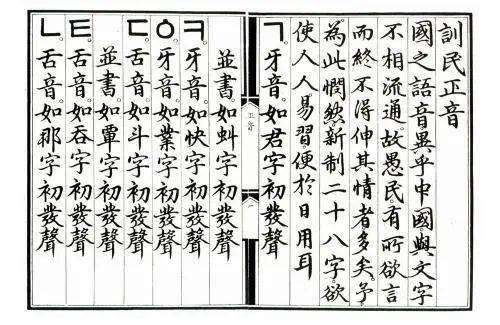 訓民正音
國之語音。異乎中國。與文字
不相流通。故愚民有所欲言
而終不得伸其情者多矣。予
為此憫然。新制二十八字。欲
使人人易習。便於日用耳
ㄱ。牙音。如君字初發聲
並書。如虯字初發聲
ㅋ。牙音。如快字初發聲
ㆁ。牙音。如業字初發聲
ㄷ。舌音。如斗字初發聲
並書。如覃字初發聲
ㅌ。舌音。如吞字初發聲
ㄴ。舌音。如那字初發聲